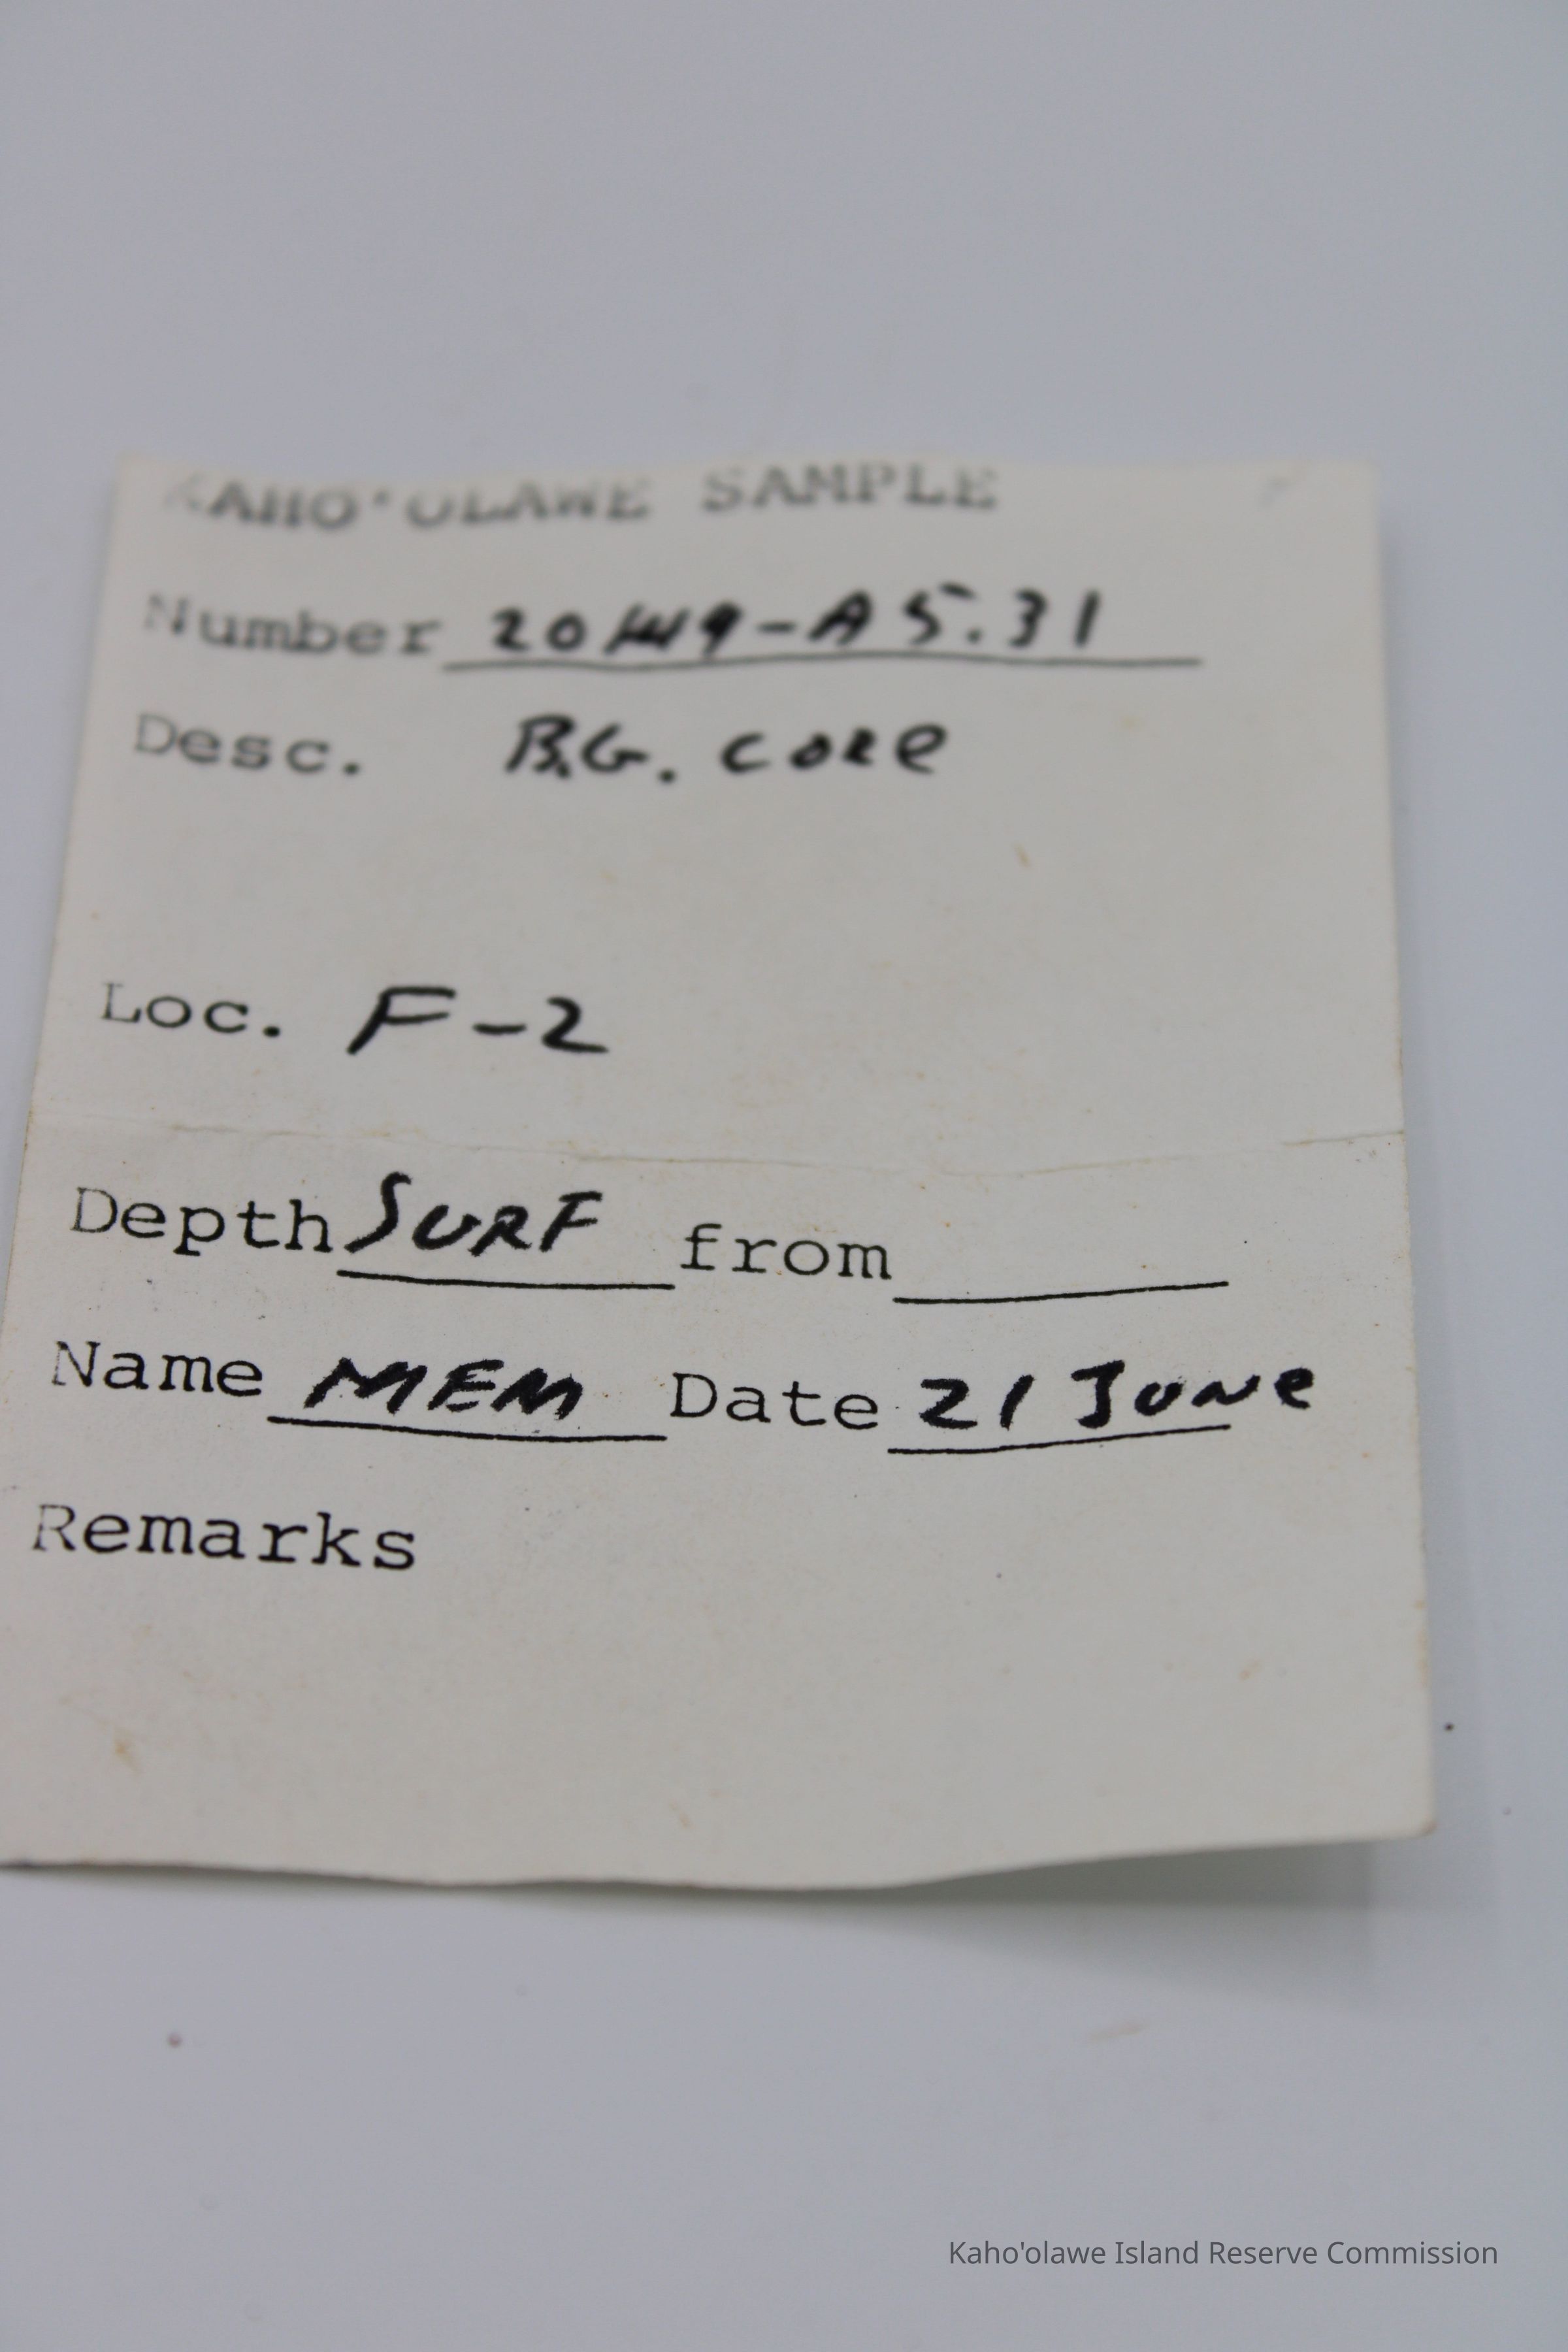 KAHO'OLAWE SAMPLE
Number A5.31
Desc. B.G. CORE
Loc. F-2
Depth SURF from
Name MEM Date 21 June
Remarks
Kaho'olawe Island Reserve Commission